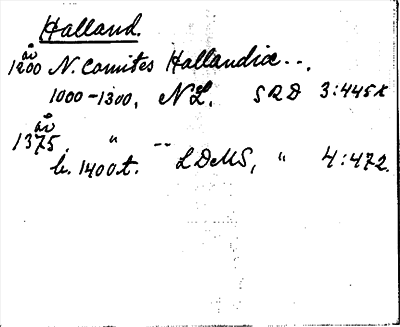 Halland.
år
1200 N. Comites Hallandiæ - - .
1000-1300, NL, SRD 3:445x
år
1375, " --
b. 1400t. LDMS, " 4:472.